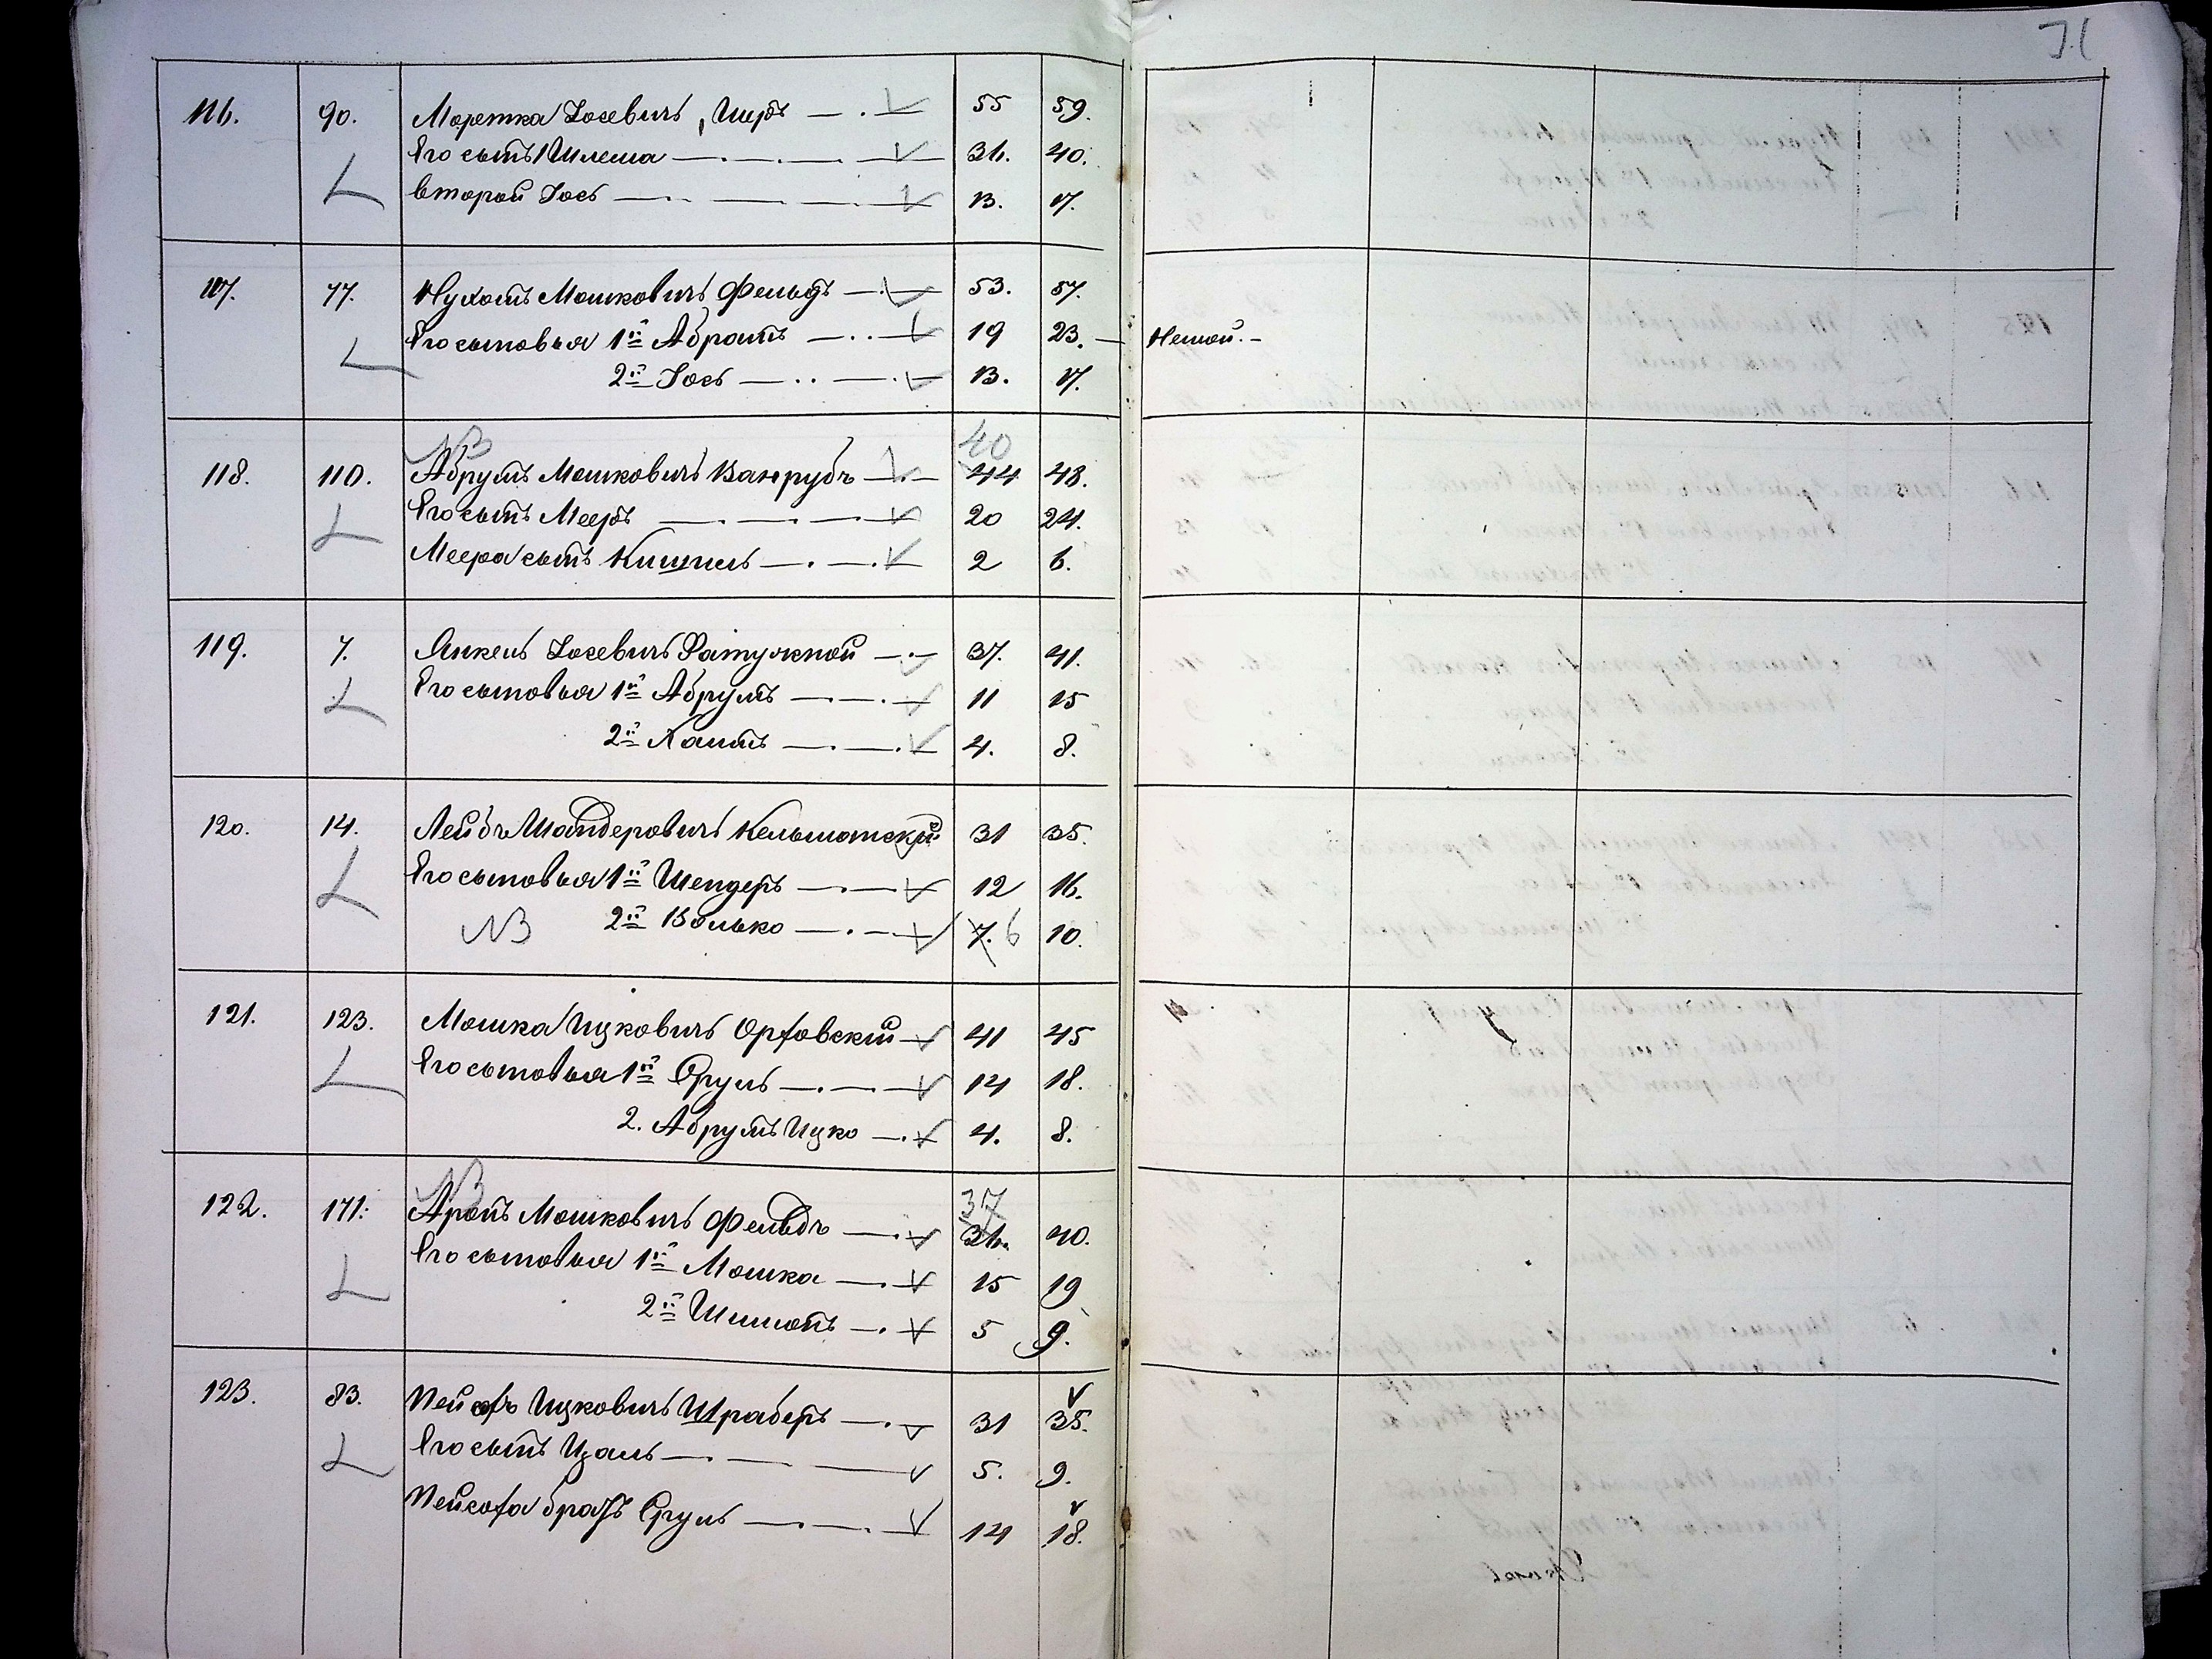 31
116. 90. Морешка Іосевичъ, Шеръ 55 59.
Его сынъ Шлема 36. 40.
второй Іось 13. 17.
117. 77. Нухомъ Мошковичъ Фельдъ 53. 57.
Его сыновья 1й Абрамъ 19 23. Немой.
2й Іось 13. 17.
NB 40
118. 110. Абрумъ Мошковичъ Ванрубъ 44 48.
Его сынъ Мееръ 20 24.
Меера сынъ Кишиль 2 6.
119. 7. Янкель Іосевичъ 37. 41.
Его сыновья 1й Абрумъ 11 15
2й Хаимъ 4. 8.
120. 14. Лейбъ Шандеровичъ Кельманскій 31 35.
Его сыновья 1й Шендеръ 12 16.
NB 2й Волько 7. 6 10.
121. 123. Мошка Ицковичъ Орговскій 41 45
Его сыновья 1й Сруль 14 18.
2. Абрумъ Ицко 4. 8.
NB 37
122. 171. Аронъ Мошковичъ Фельдъ 36. 40.
Его сыновья 1й Мошка 15 19
2й Шимонъ 5 9.
123. 83. Пейсахъ Ицковичъ Шраберъ 31 35.
Его сынъ Ицаль 5. 9.
Пейсаха братъ Сруль 14 18.